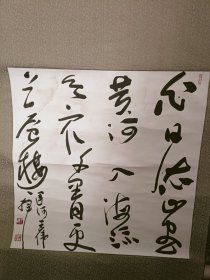 白日依山尽
黄河入海流
欲穷千里目更
上一层楼